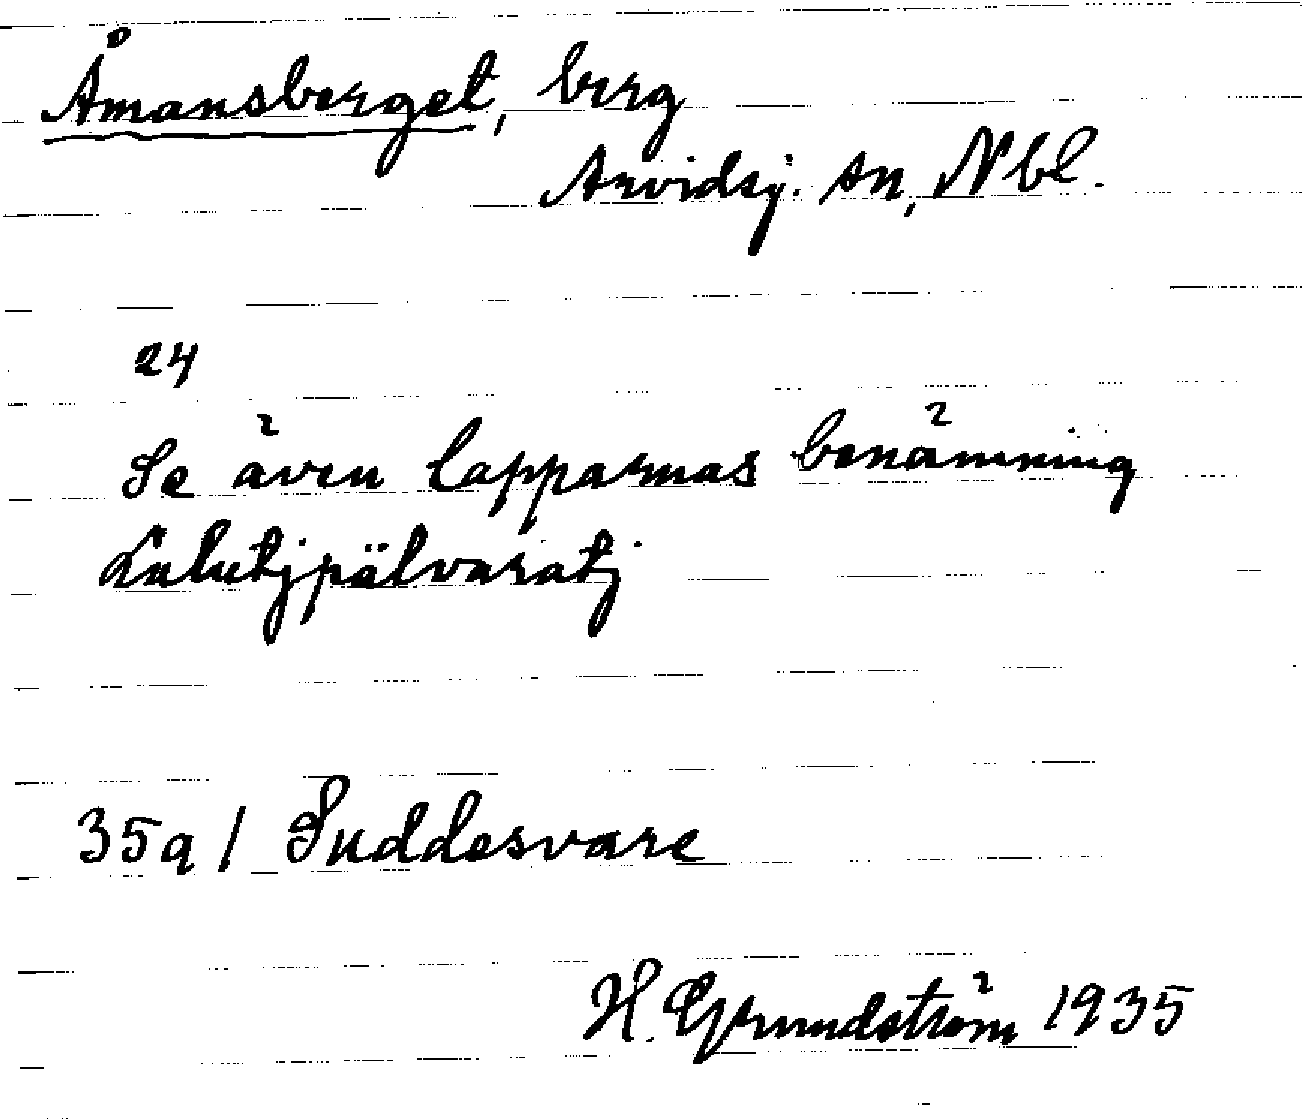 Åmansberget, berg
Arvidsj. sn, Nbl.
24
Se även lapparnas benämning
Lulutjpälvaratj
35a / Suddesvare
H. Grundström 1935